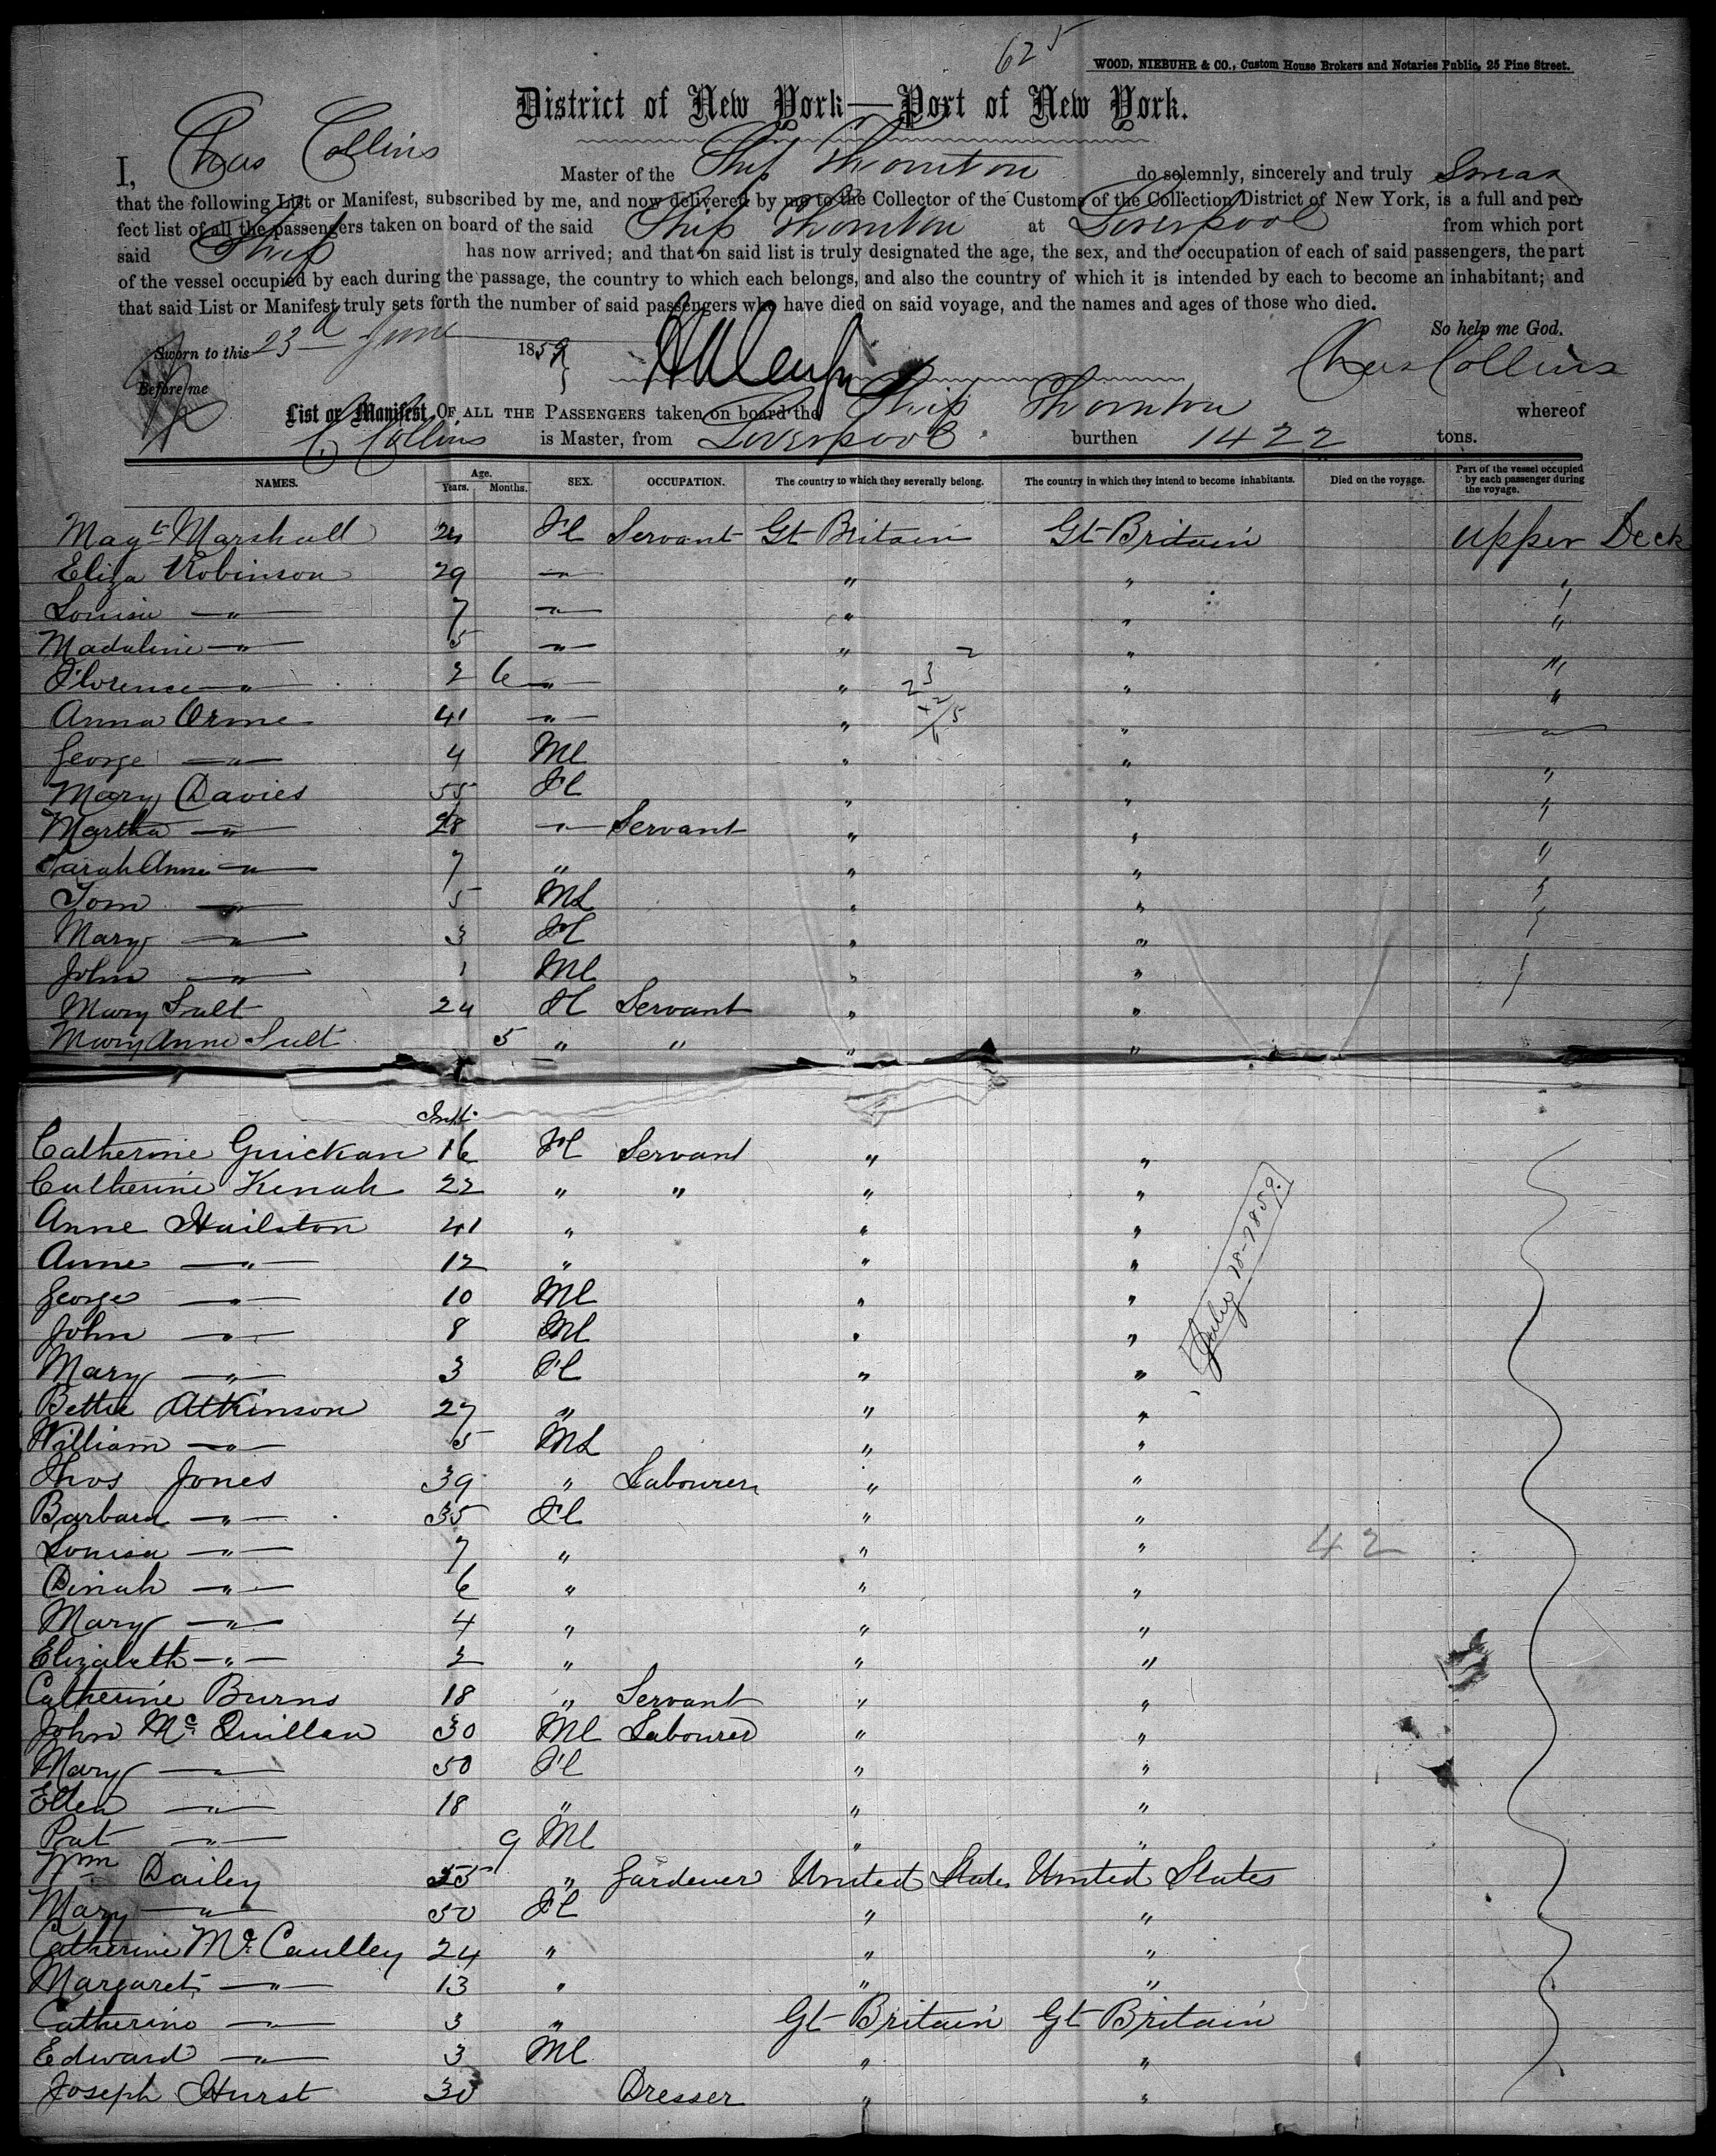 625
WOOD, NIEBUHR & CO., Custom House Brokers and Notaries Public, 25 Pine Street.
District of New York—Port of New York.
I, Chas Collins Master of the Ship Thornton do solemnly, sincerely and truly Swear
that the following List or Manifest, subscribed by me, and now delivered by me to the Collector of the Customs of the Collection District of New York, is a full and per-
fect list of all the passengers taken on board of the said Ship Thornton at Liverpool from which port
said Ship has now arrived; and that on said list is truly designated the age, the sex, and the occupation of each of said passengers, the part
of the vessel occupied by each during the passage, the country to which each belongs, and also the country of which it is intended by each to become an inhabitant; and
that said List or Manifest truly sets forth the number of said passengers who have died on said voyage, and the names and ages of those who died.
So help me God.
Sworn to this 23d June 1859
Chas Collins
Before me
List or Manifest, OF ALL THE PASSENGERS taken on board the Ship Thornton whereof
C Collins is Master, from Liverpool burthen 1422 tons.
NAMES. Age. Years. Months. SEX. OCCUPATION. The country to which they severally belong. The country in which they intend to become inhabitants. Died on the voyage. Part of the vessel occupied by each passenger during the voyage.
Magt Marshall 24 Fl Servant Gt Britain Gt Britain upper Deck
Eliza Robinson 29 " " " "
Louisa " 7 " " " "
Madaline " 5 " " " "
Florence " 2 6 " " " "
Anna Orme 41 " " " "
George " 4 Ml " " "
Mary Davies 55 Fl " " "
Martha " 28 " Servant " " "
Sarah Anne " 7 " " " "
Tom " 5 Ml " " "
Mary " 3 Fl " " "
John " 1 Ml " "
Mary Sult 24 Fl Servant " "
Mary Anne Sult 5 " " " "
Catherine Guickan 16 Fl Servant " "
Catherine Kenah 22 " " " "
Anne Hailston 41 " " "
Anne " 12 " " "
George " 10 Ml " "
John " 8 Ml " "
Mary " 3 Fl " "
July 28-1859.
Bettie Atkinson 27 " " "
William " 5 Ml " "
Thos Jones 39 " Labourer " "
Barbara " 35 Fl " "
Louisa " 7 " " "
42
Dinah " 6 " " "
Mary " 4 " " "
Elizabeth " 2 " " "
Catherine Burns 18 " Servant " "
John Mc Quillan 30 Ml Labourer " "
Mary " 50 Fl " "
Ellen " 18 " " "
Pat " 9 Ml " "
Wm Dailey 55 " Gardener United States United States
Mary " 50 Fl " "
Catherine Mc Caulley 24 " " "
Margaret " 13 " " "
Catherine " 3 " Gt Britain Gt Britain
Edward " 3 Ml " "
Joseph Hurst 30 Dresser " "